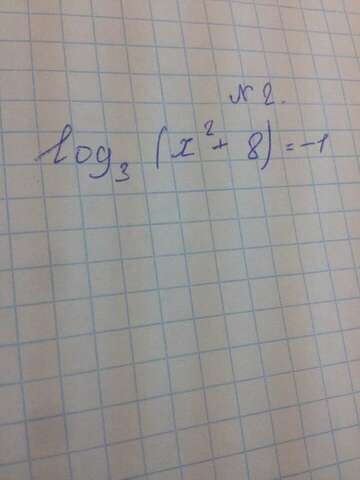 № 2.
log₃ (x² + 8) = -1